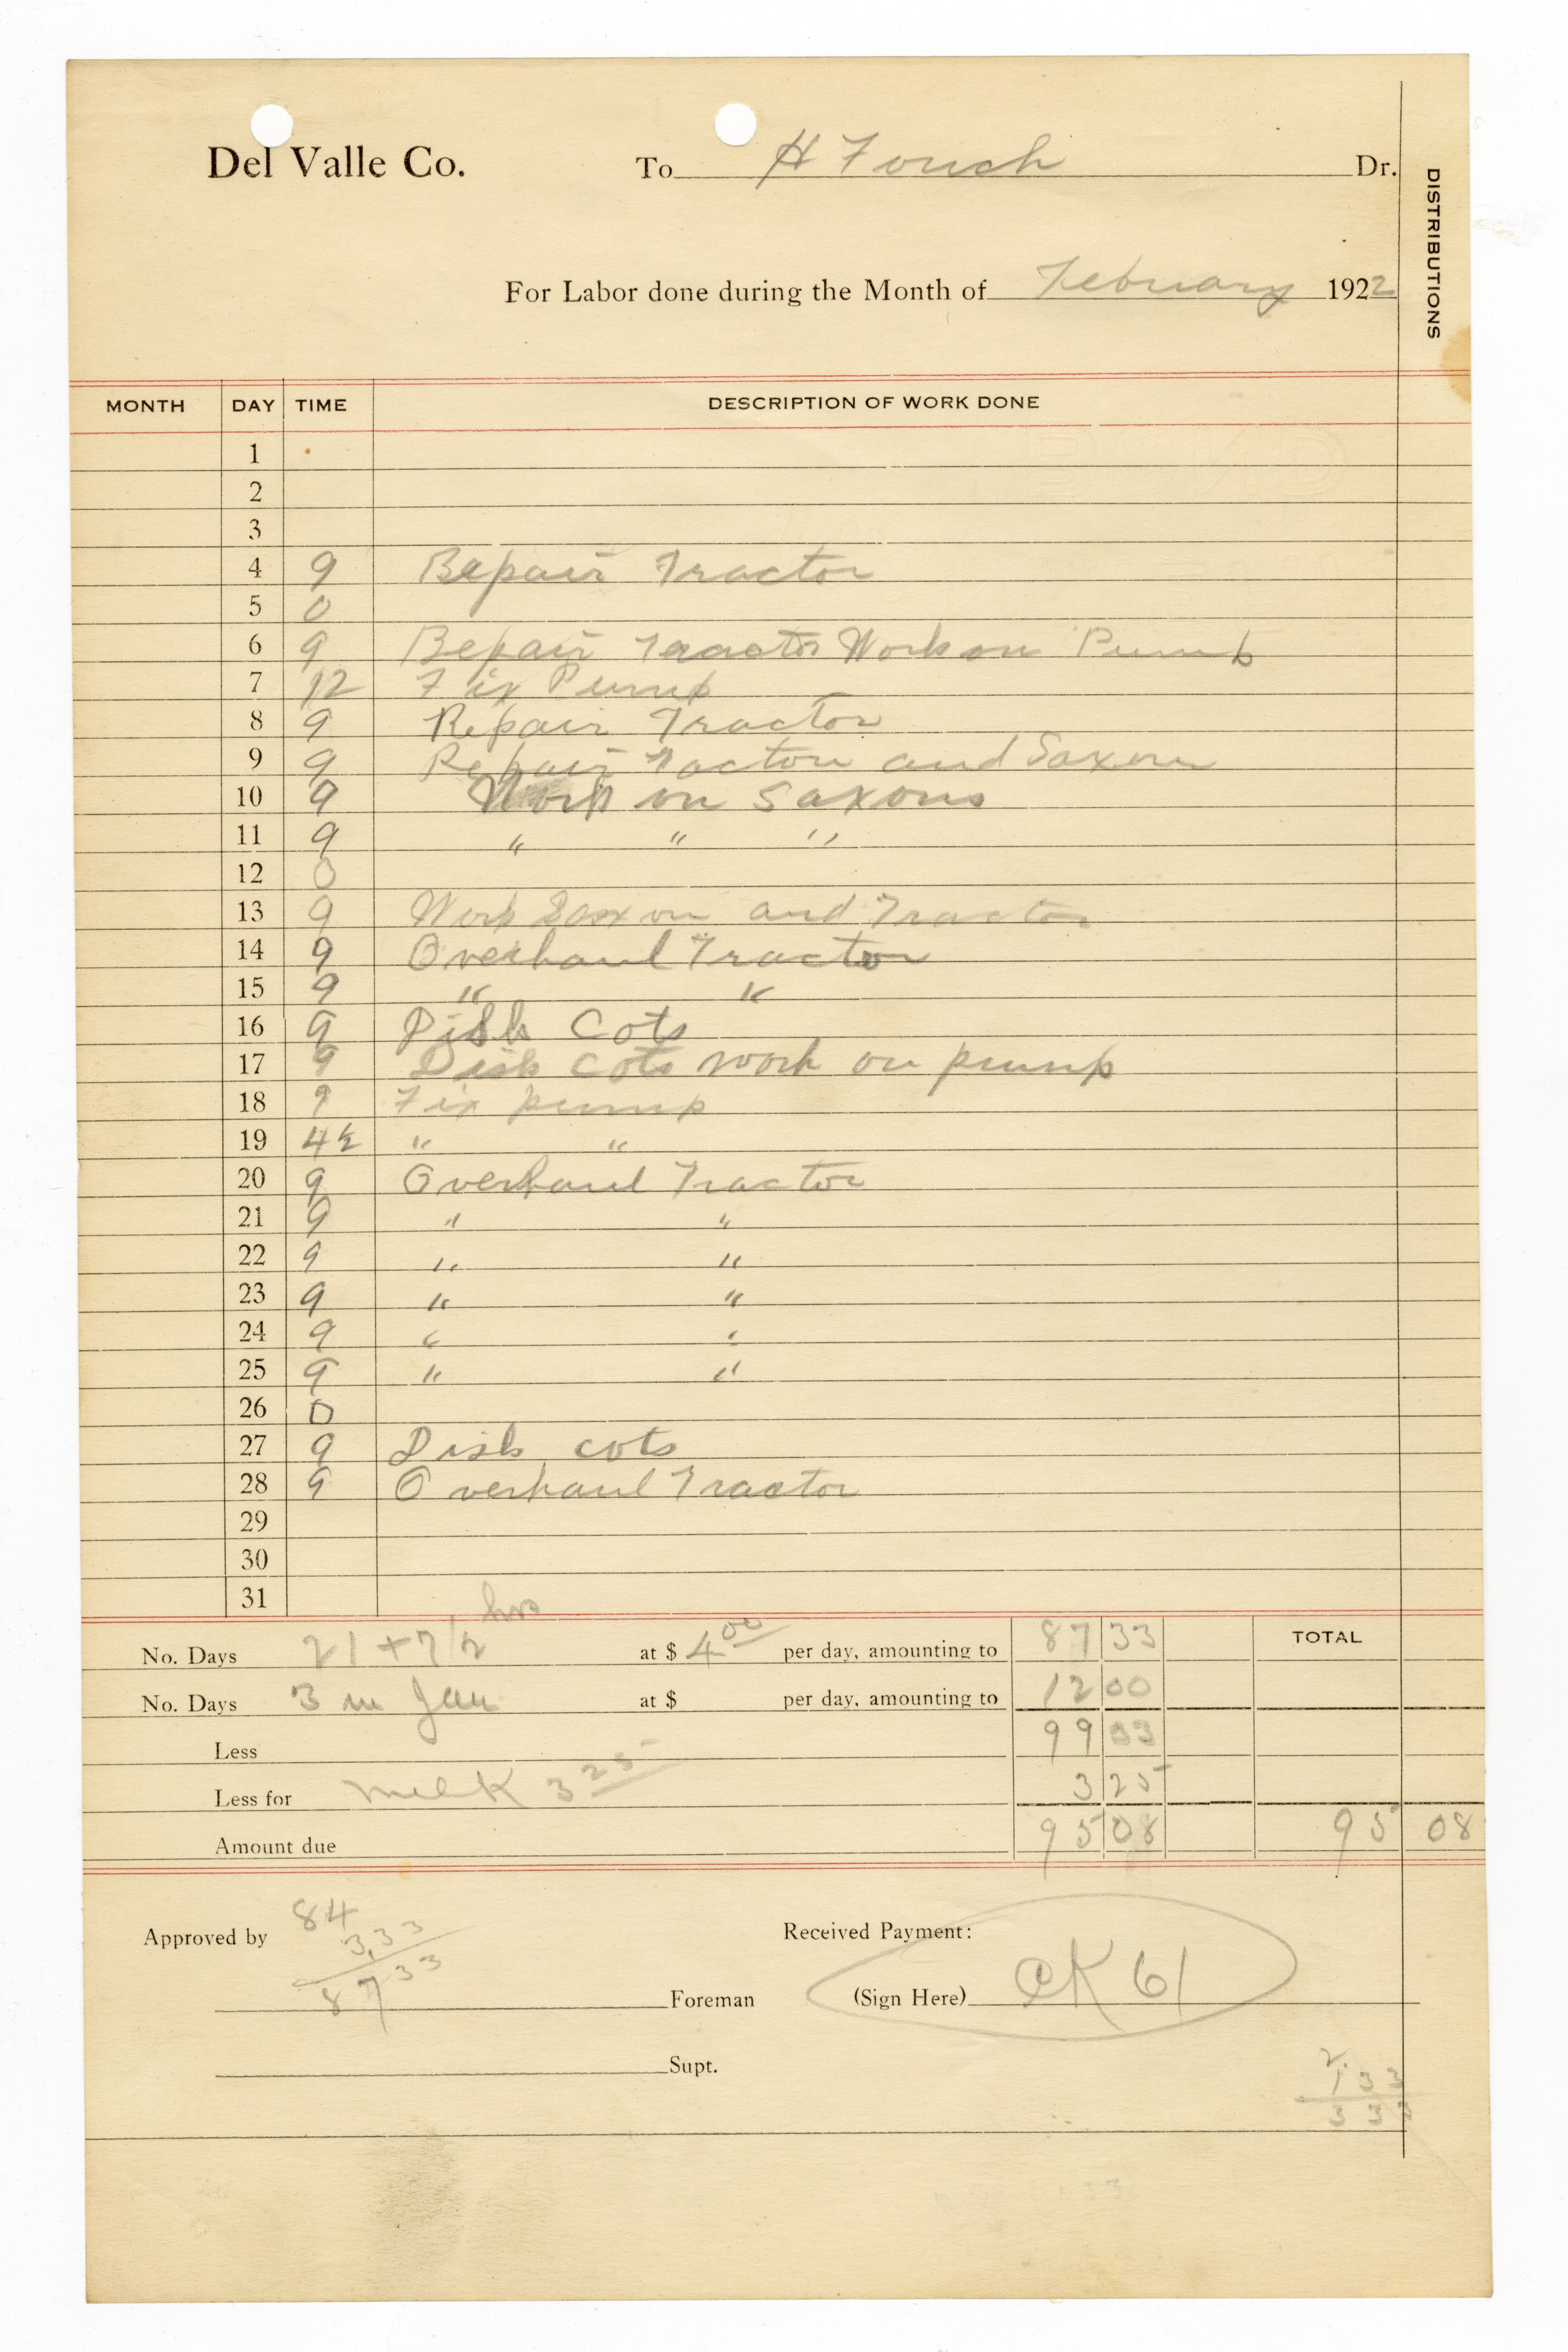 Del Valle Co. To H Fouch Dr.
DISTRIBUTIONS
For Labor done during the Month of February 1922
MONTH DAY TIME DESCRIPTION OF WORK DONE
1
2
3
4 9 Repair Tractor
5 0
6 9 Repair Tractor Work on Pump
7 12 Fix Pump
8 9 Repair Tractor
9 9 Repair Tractor and Saxon
10 9 Work on Saxons
11 9 " " "
12 0
13 9 Work Saxon and Tractor
14 9 Overhaul Tractor
15 9 " "
16 9 Disk Cots
17 9 Disk Cots work on pump
18 9 Fix pump
19 4½ " "
20 9 Overhaul Tractor
21 9 " "
22 9 " "
23 9 " "
24 9 " "
25 9 " "
26 0
27 9 Disk cots
28 9 Overhaul Tractor
29
30
31
No. Days 21 + 7½ hrs at $ 4 00 per day, amounting to 87 33 TOTAL
No. Days 3 in Jan at $ per day, amounting to 12 00
Less 99 33
Less for milk 3 25 3 25
Amount due 95 08 95 08
Approved by 84
3,33
87 33
Received Payment:
Foreman (Sign Here) CK 61
Supt.
2.
1 33
3 33